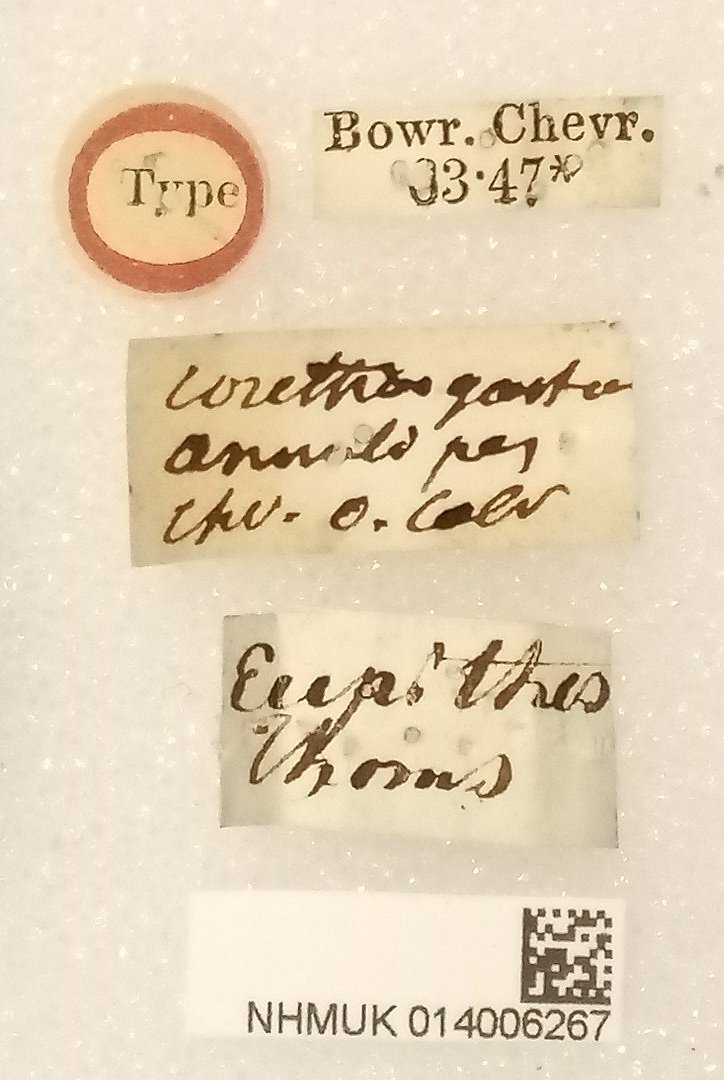 Type
Bowr. Chevr.
63·47*
Corethrogaster
annulipes
Chv. o. Calv
Thoms
NHMUK 014006267